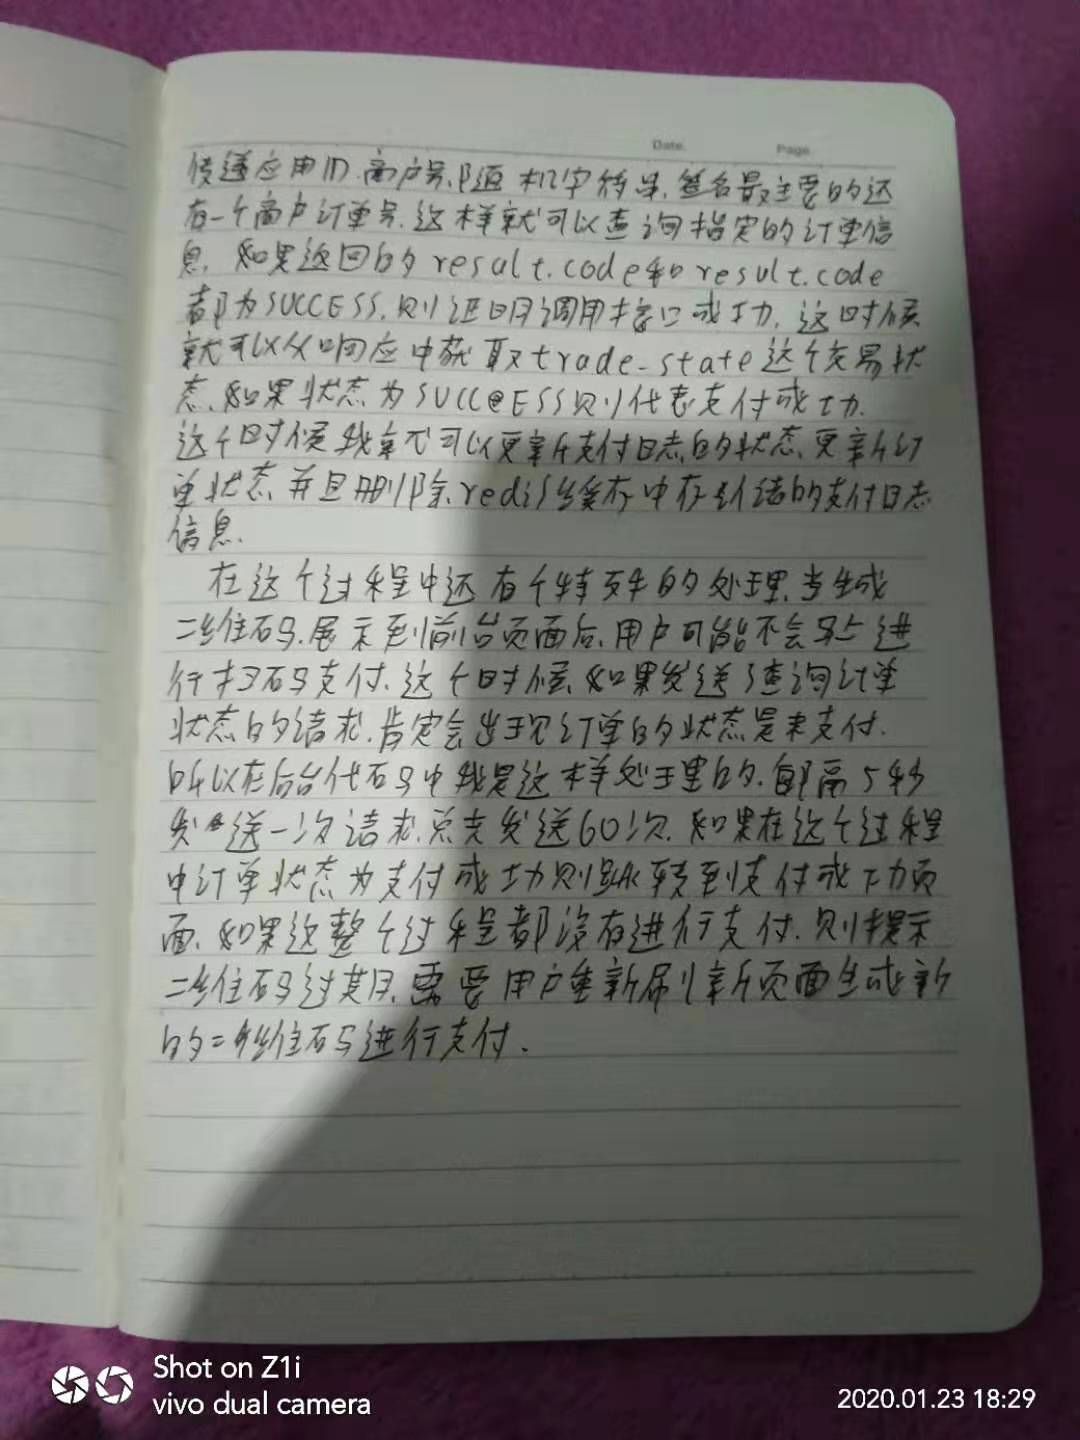 Date.
Page.
传递应用ID、商户号、随机字符串、签名最主要的还
有一个商户订单号,这样就可以查询指定的订单信
息,如果返回的result.code和result.code
都为SUCCESS,则证明调用接口成功,这时候
就可以从响应中获取trade_state这个交易状
态,如果状态为SUCCESS则代表支付成功.
这个时候我就可以更新支付日志的状态、更新订
单状态,并且删除redis缓存中存储的支付日志
信息.
在这个过程中还有个特殊的处理,当生成
二维码,展示到前台页面后,用户可能不会马上进
行扫码支付,这个时候,如果发送了查询订单
状态的请求,肯定会出现订单的状态是未支付.
所以在后台代码中我是这样处理的,每隔5秒
发送一次请求,总共发送60次,如果在这个过程
中订单状态为支付成功则跳转到支付成功页
面,如果这整个过程都没有进行支付,则提示
二维码过期,需要用户重新刷新页面生成新
的二维码进行支付.
Shot on Z1i
vivo dual camera
2020.01.23 18:29